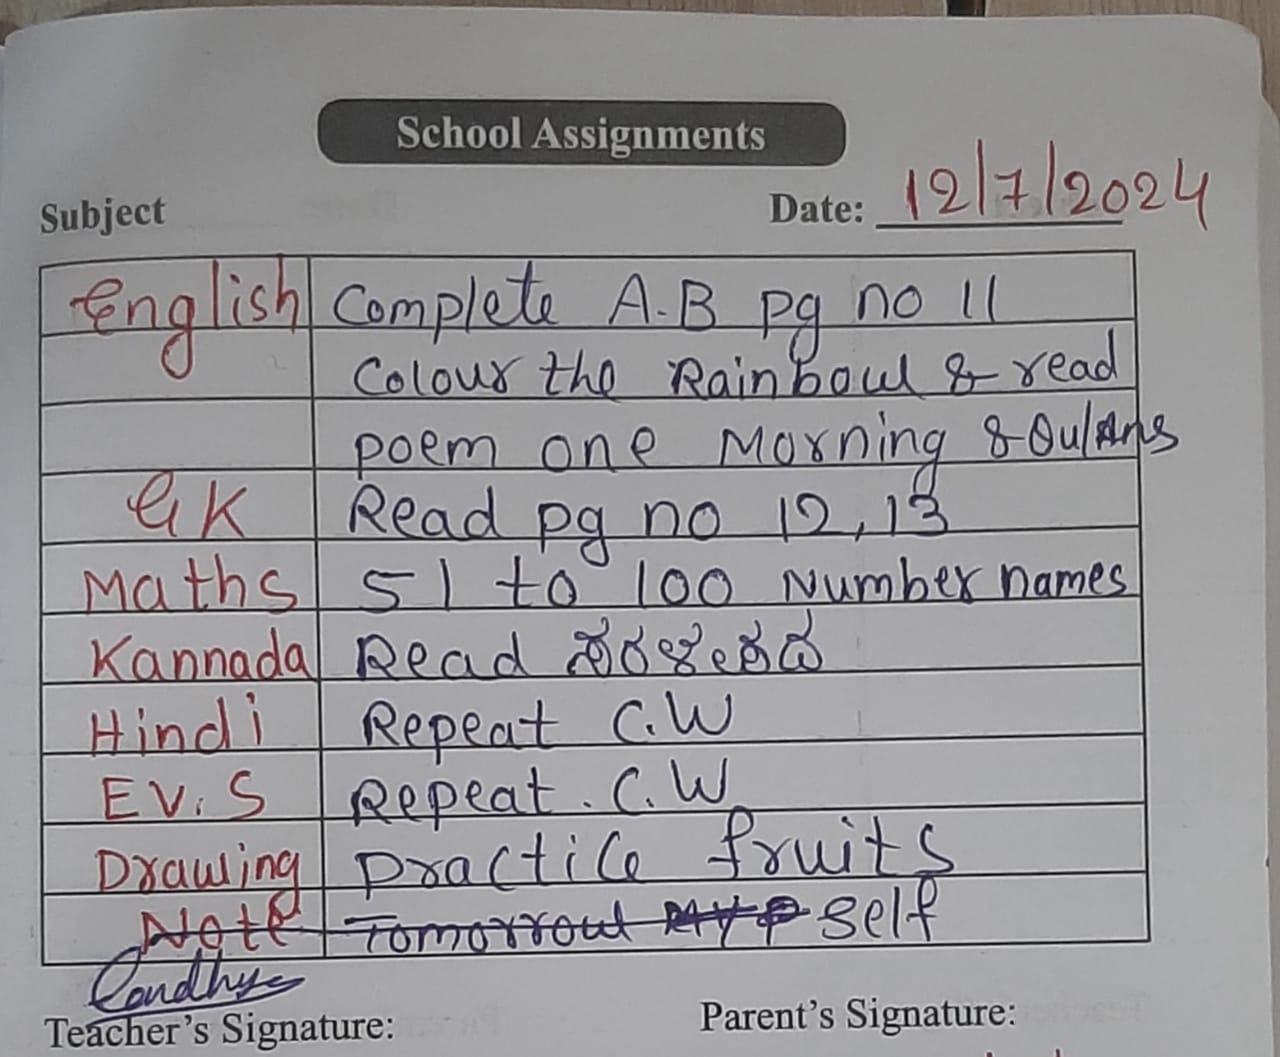 School Assignments
Subject Date: 12/7/2024
English Complete A.B pg no 11
Colour the Rainbow & read
poem one Morning & Qu/Ans
GK Read pg no 12,13
Maths 51 to 100 Number names
Kannada Read
Hindi Repeat C.W
EV.S Repeat . C.W
Drawing Practice fruits
Note Tomorrow My self
Sandhya
Teacher's Signature: Parent's Signature: